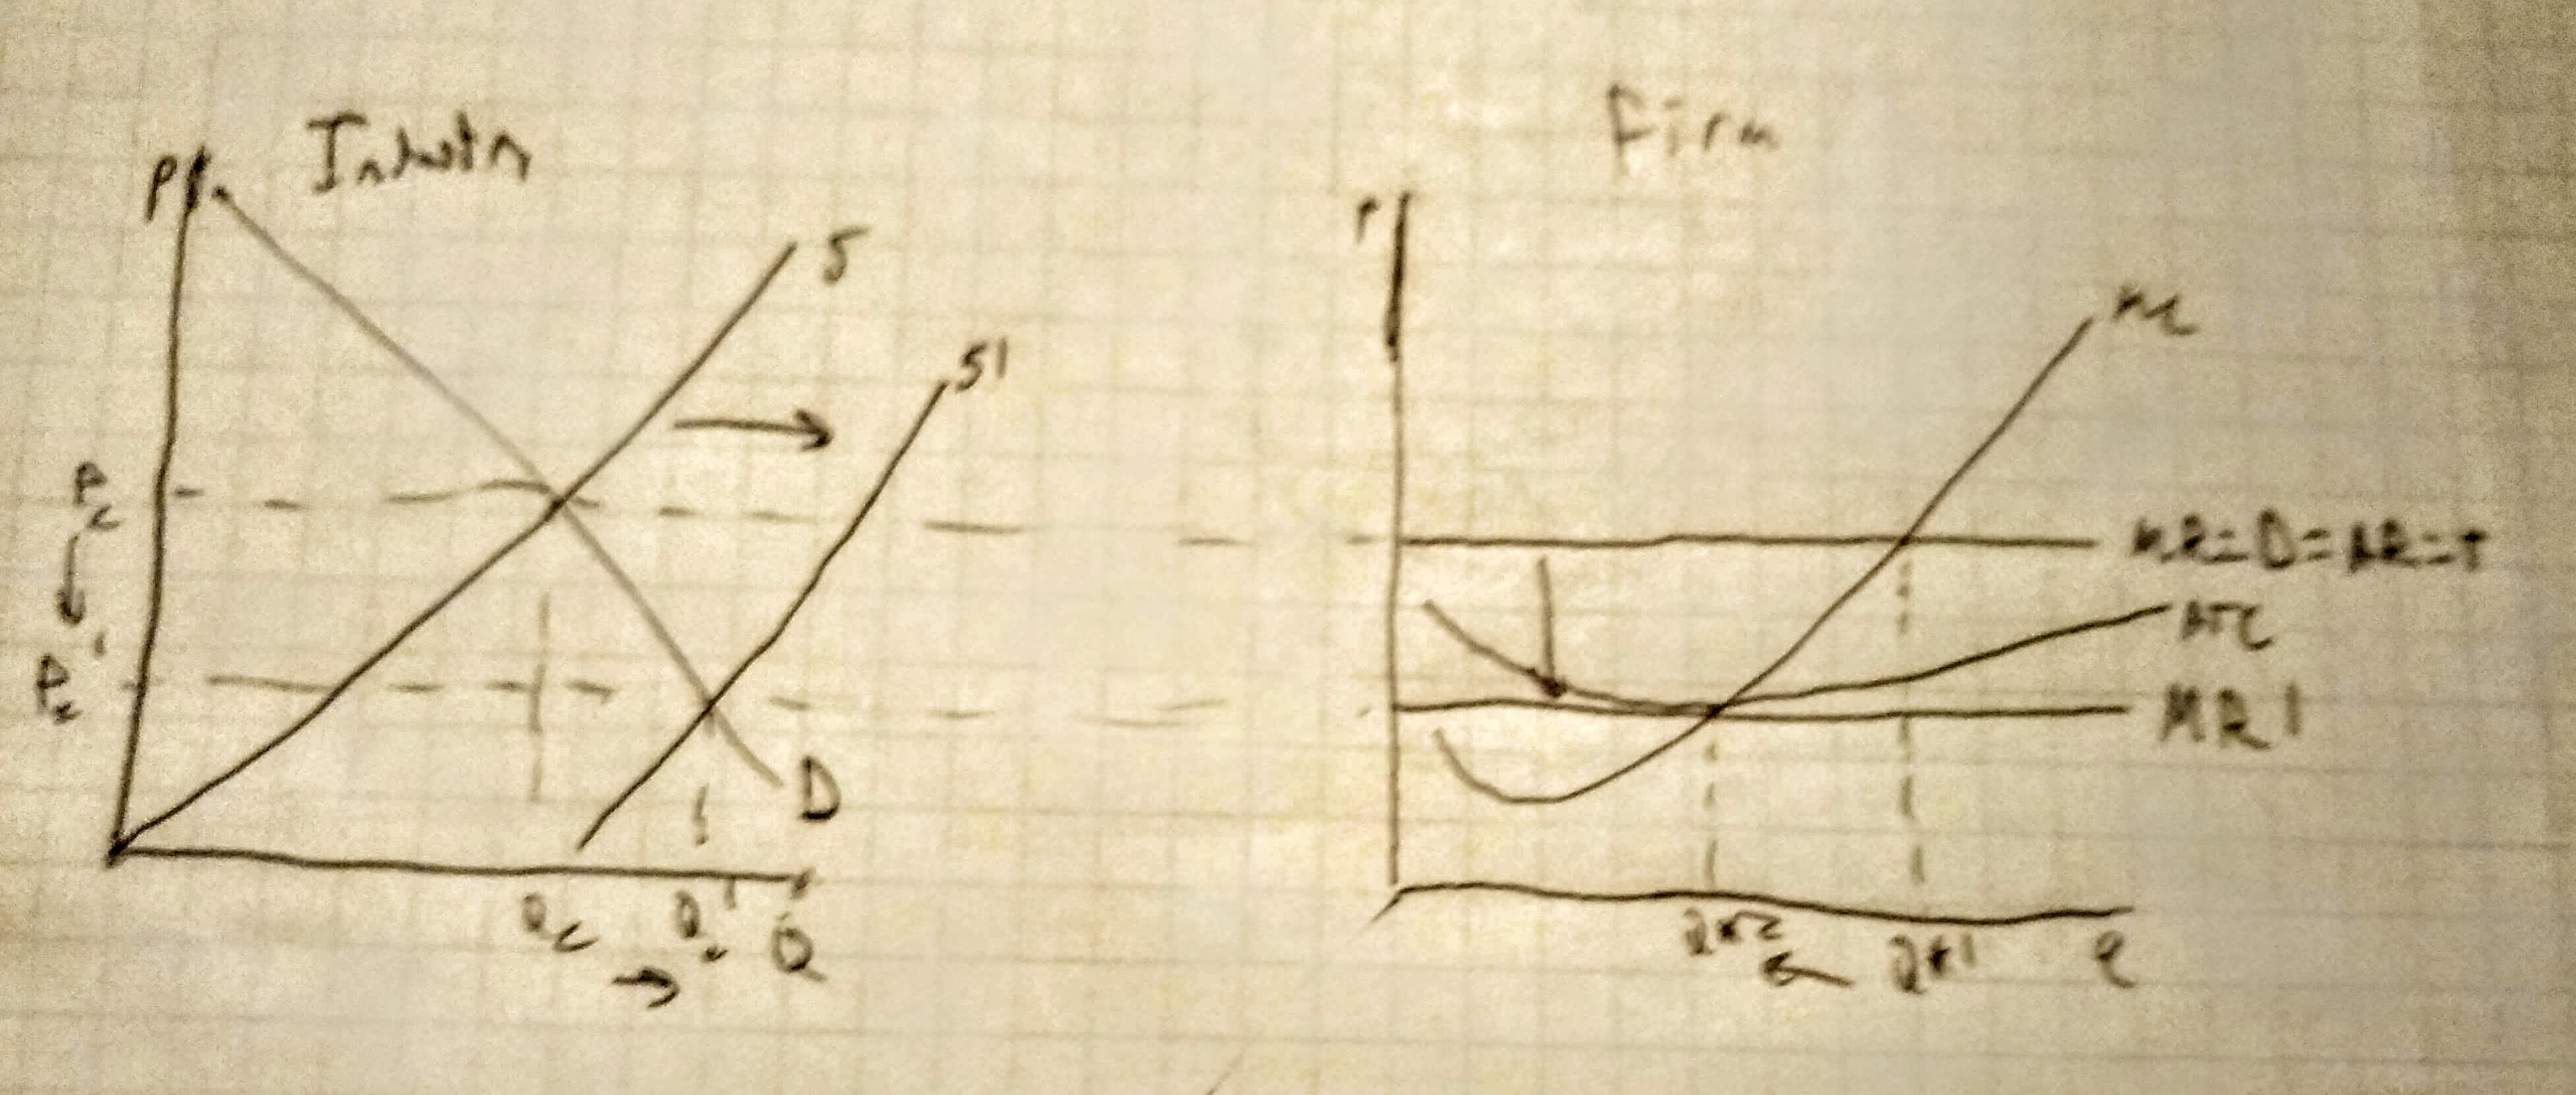 P Industry
S
S1
Pe
Pe'
D
Qe Qe' Q
Firm
P
MC
MR=D=AR=P
ATC
MR1
Q*2 Q*1 Q